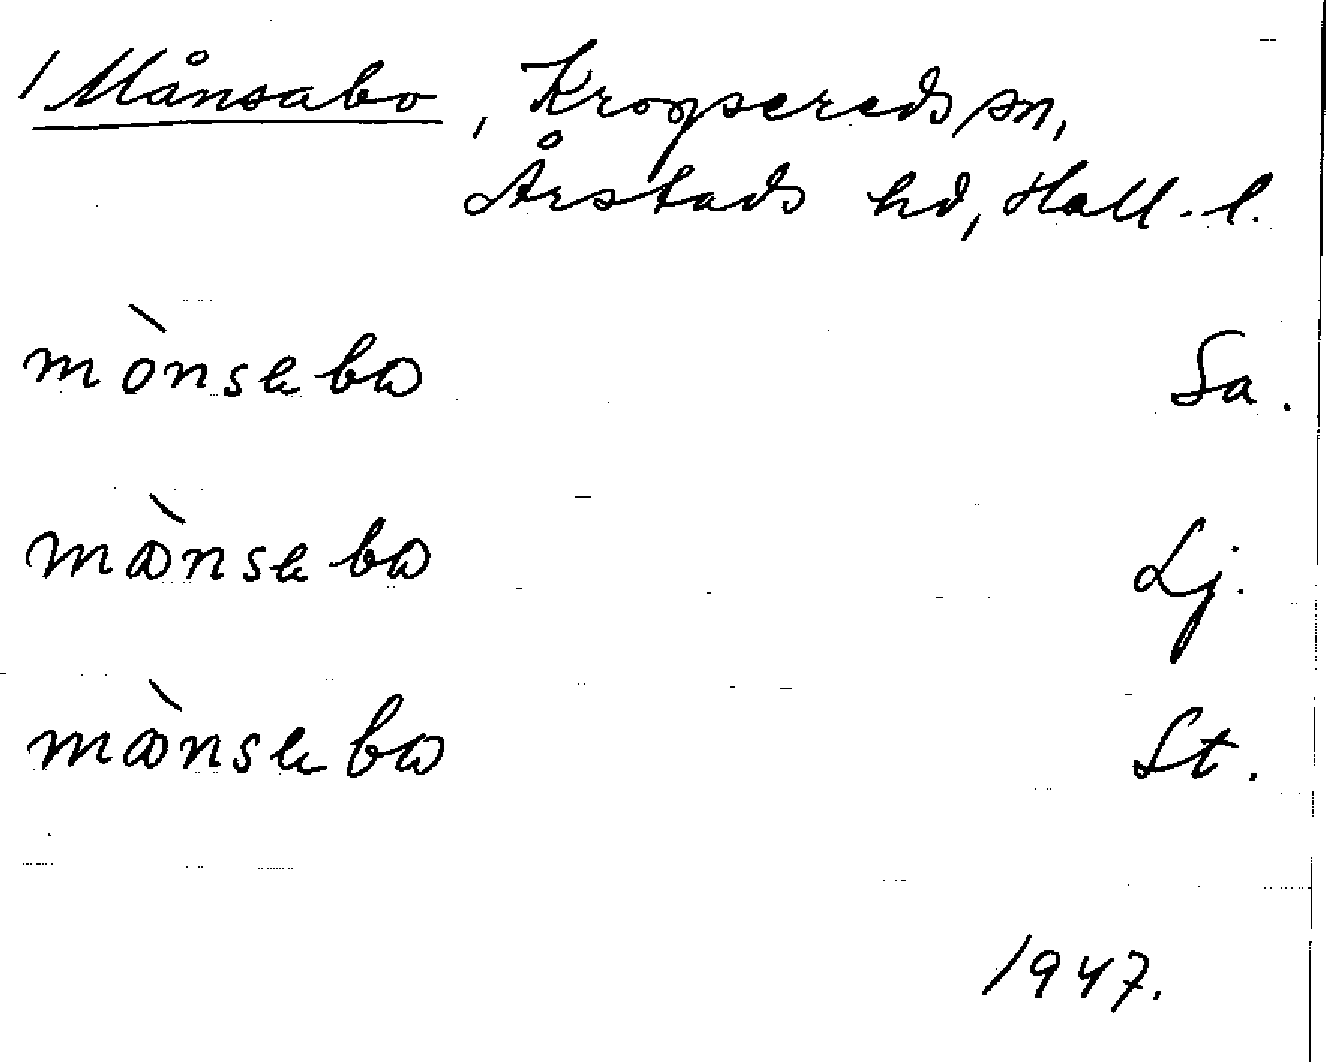 / Månsabo, Kropsereds sn,
Årstads hd, Hall. l.
mònseba Sa.
mànseba Lj.
mànseba St.
1947.